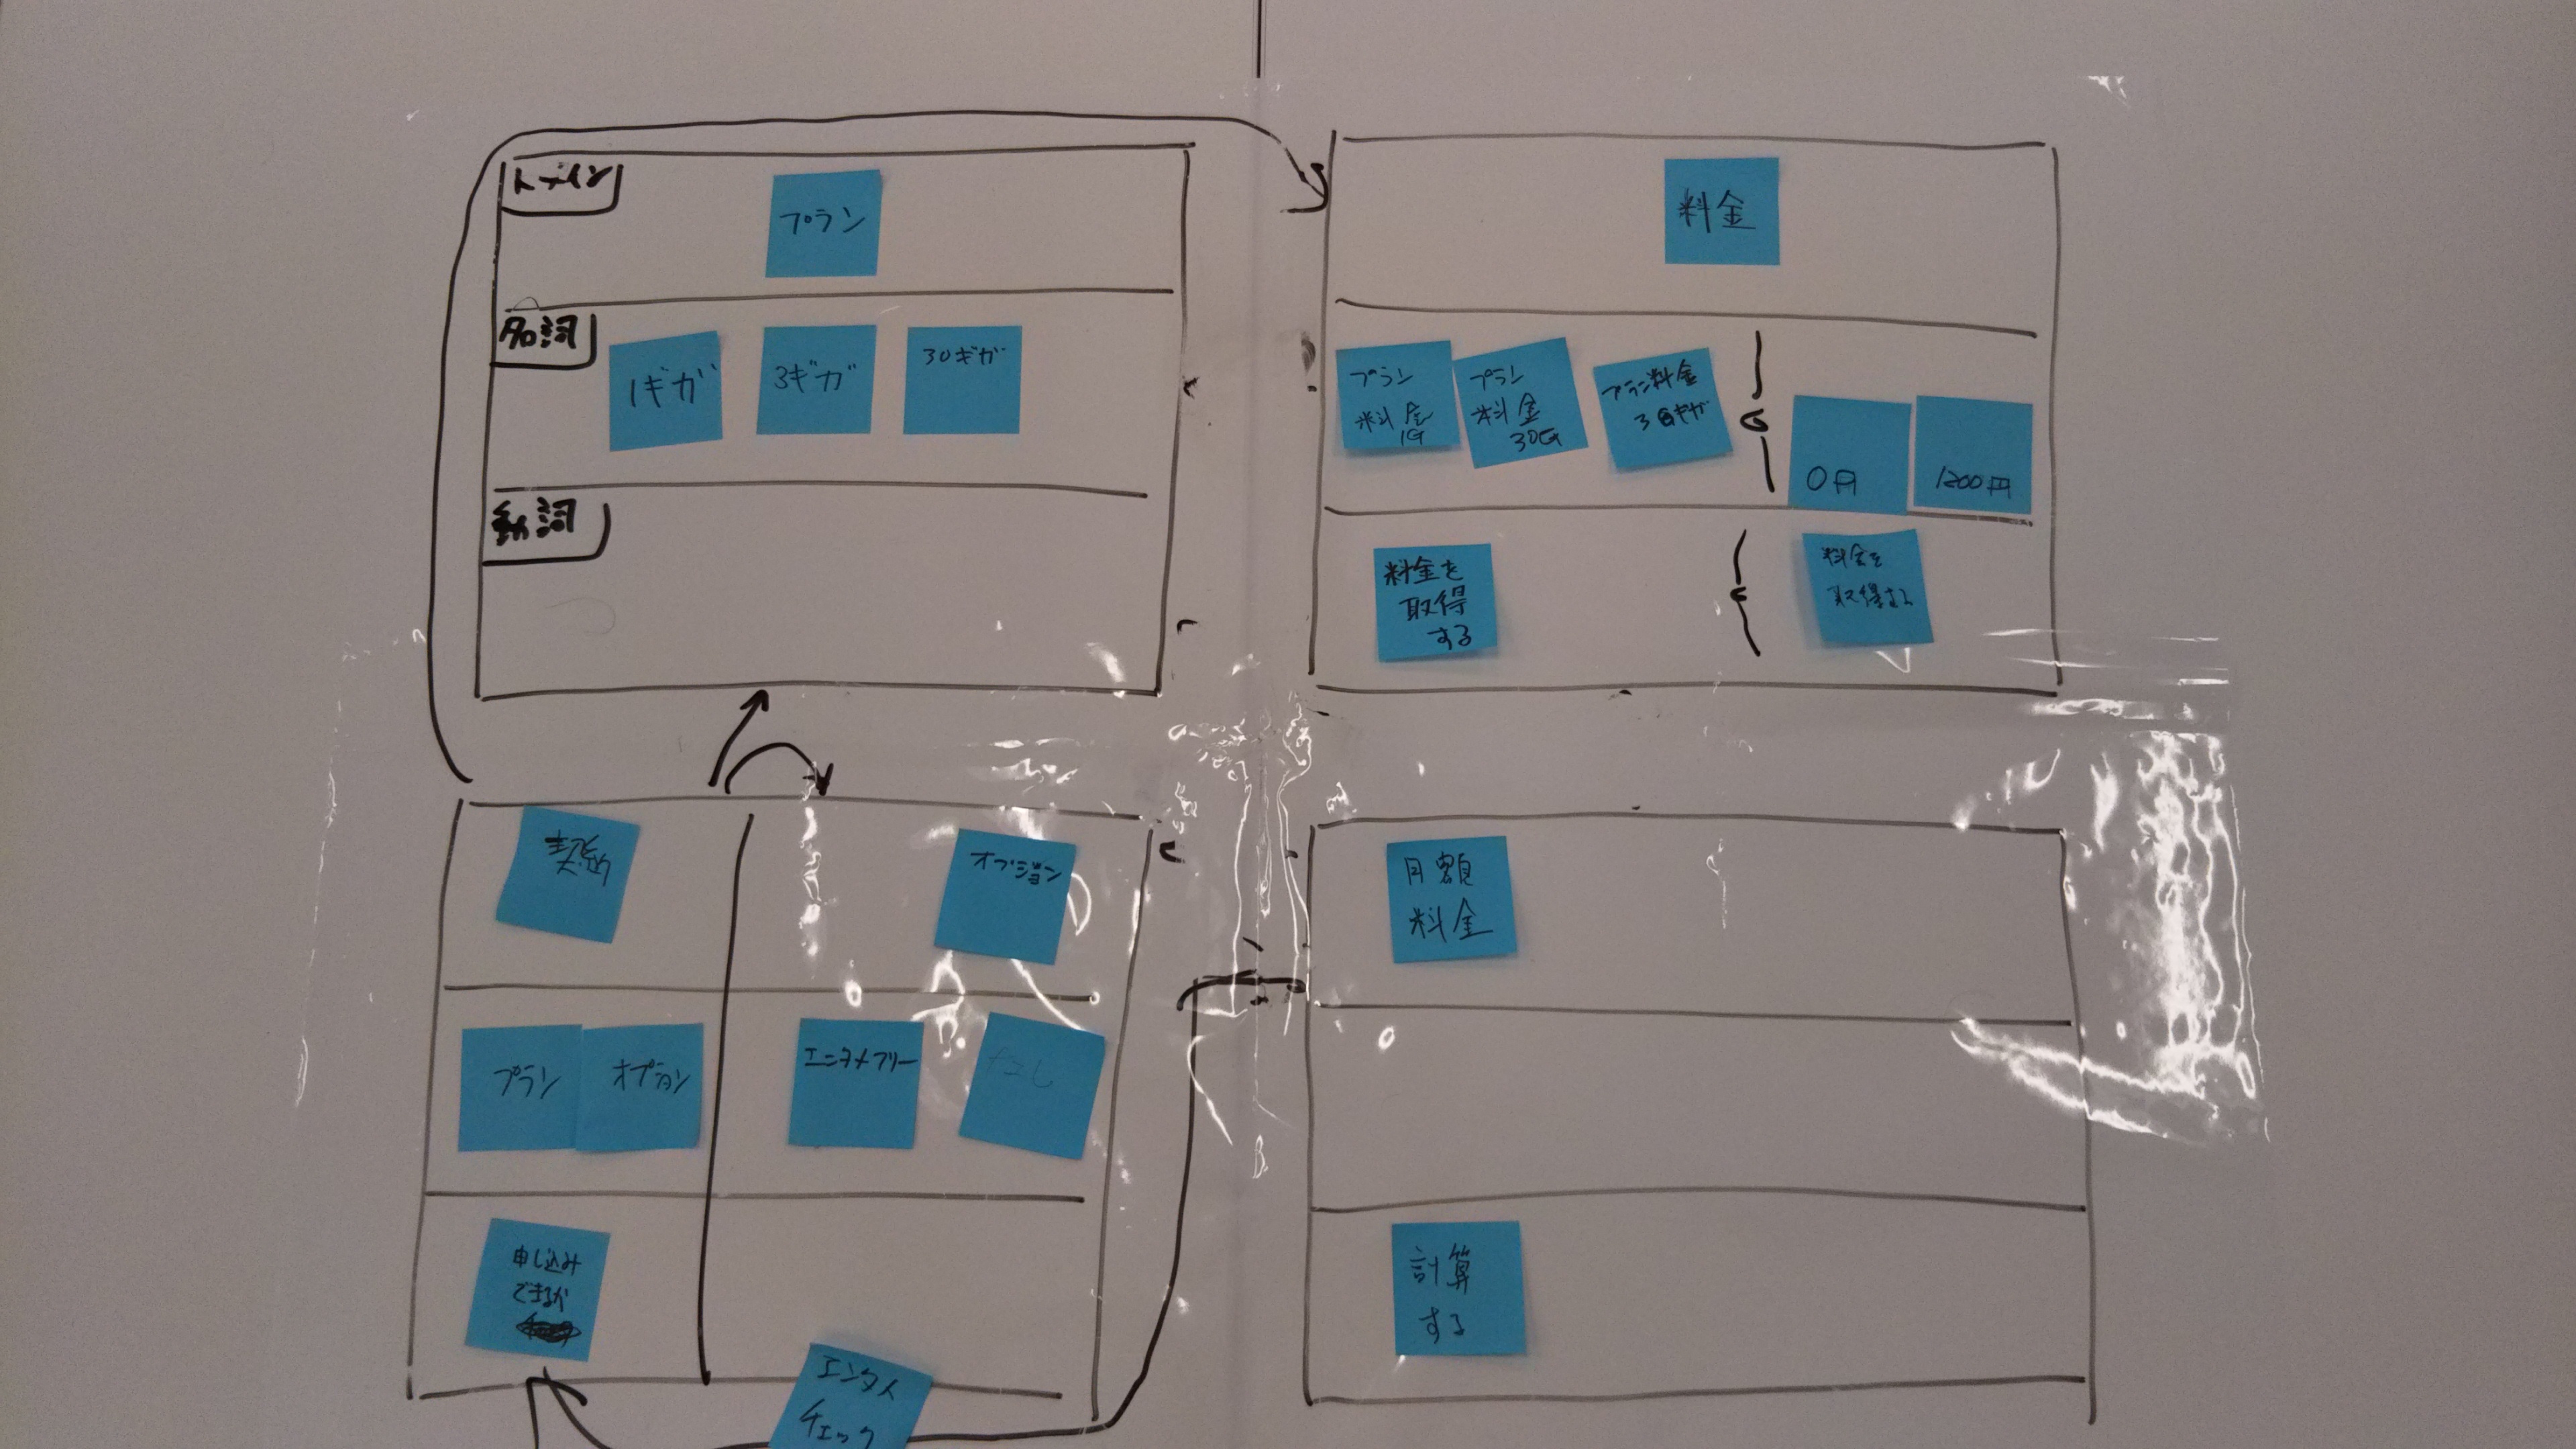 ドメイン
プラン
名詞
1ギガ
3ギガ
30ギガ
動詞
料金
プラン
料金
1G
プラン
料金
30G
プラン料金
ギガ
0円
1200円
料金を
取得
する
料金を
取得する
契約
オプション
プラン
オプション
エンタメフリー
なし
申し込み
できるか
エンタメ
チェック
月額
料金
計算
する